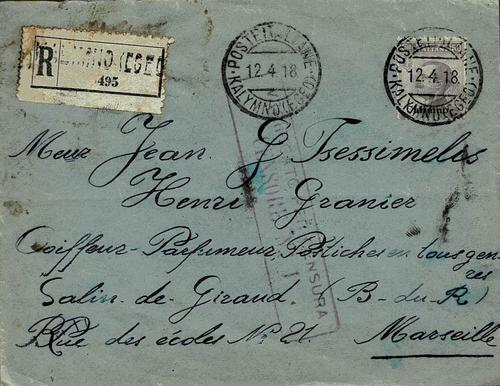 R
495
POSTE ITALIANE
12.4.18
KALYMNO (EGEO)
POSTE ITALIANE
12.4.18
KALYMNO (EGEO)
CENSURA
Jean. G Tsessimelis
Henri Granier
Coiffeur-Parfumeur Postiches en tous gen-
res
Salin-de-Giraud. (B-du-R)
Rue des écoles No 21. Marseille